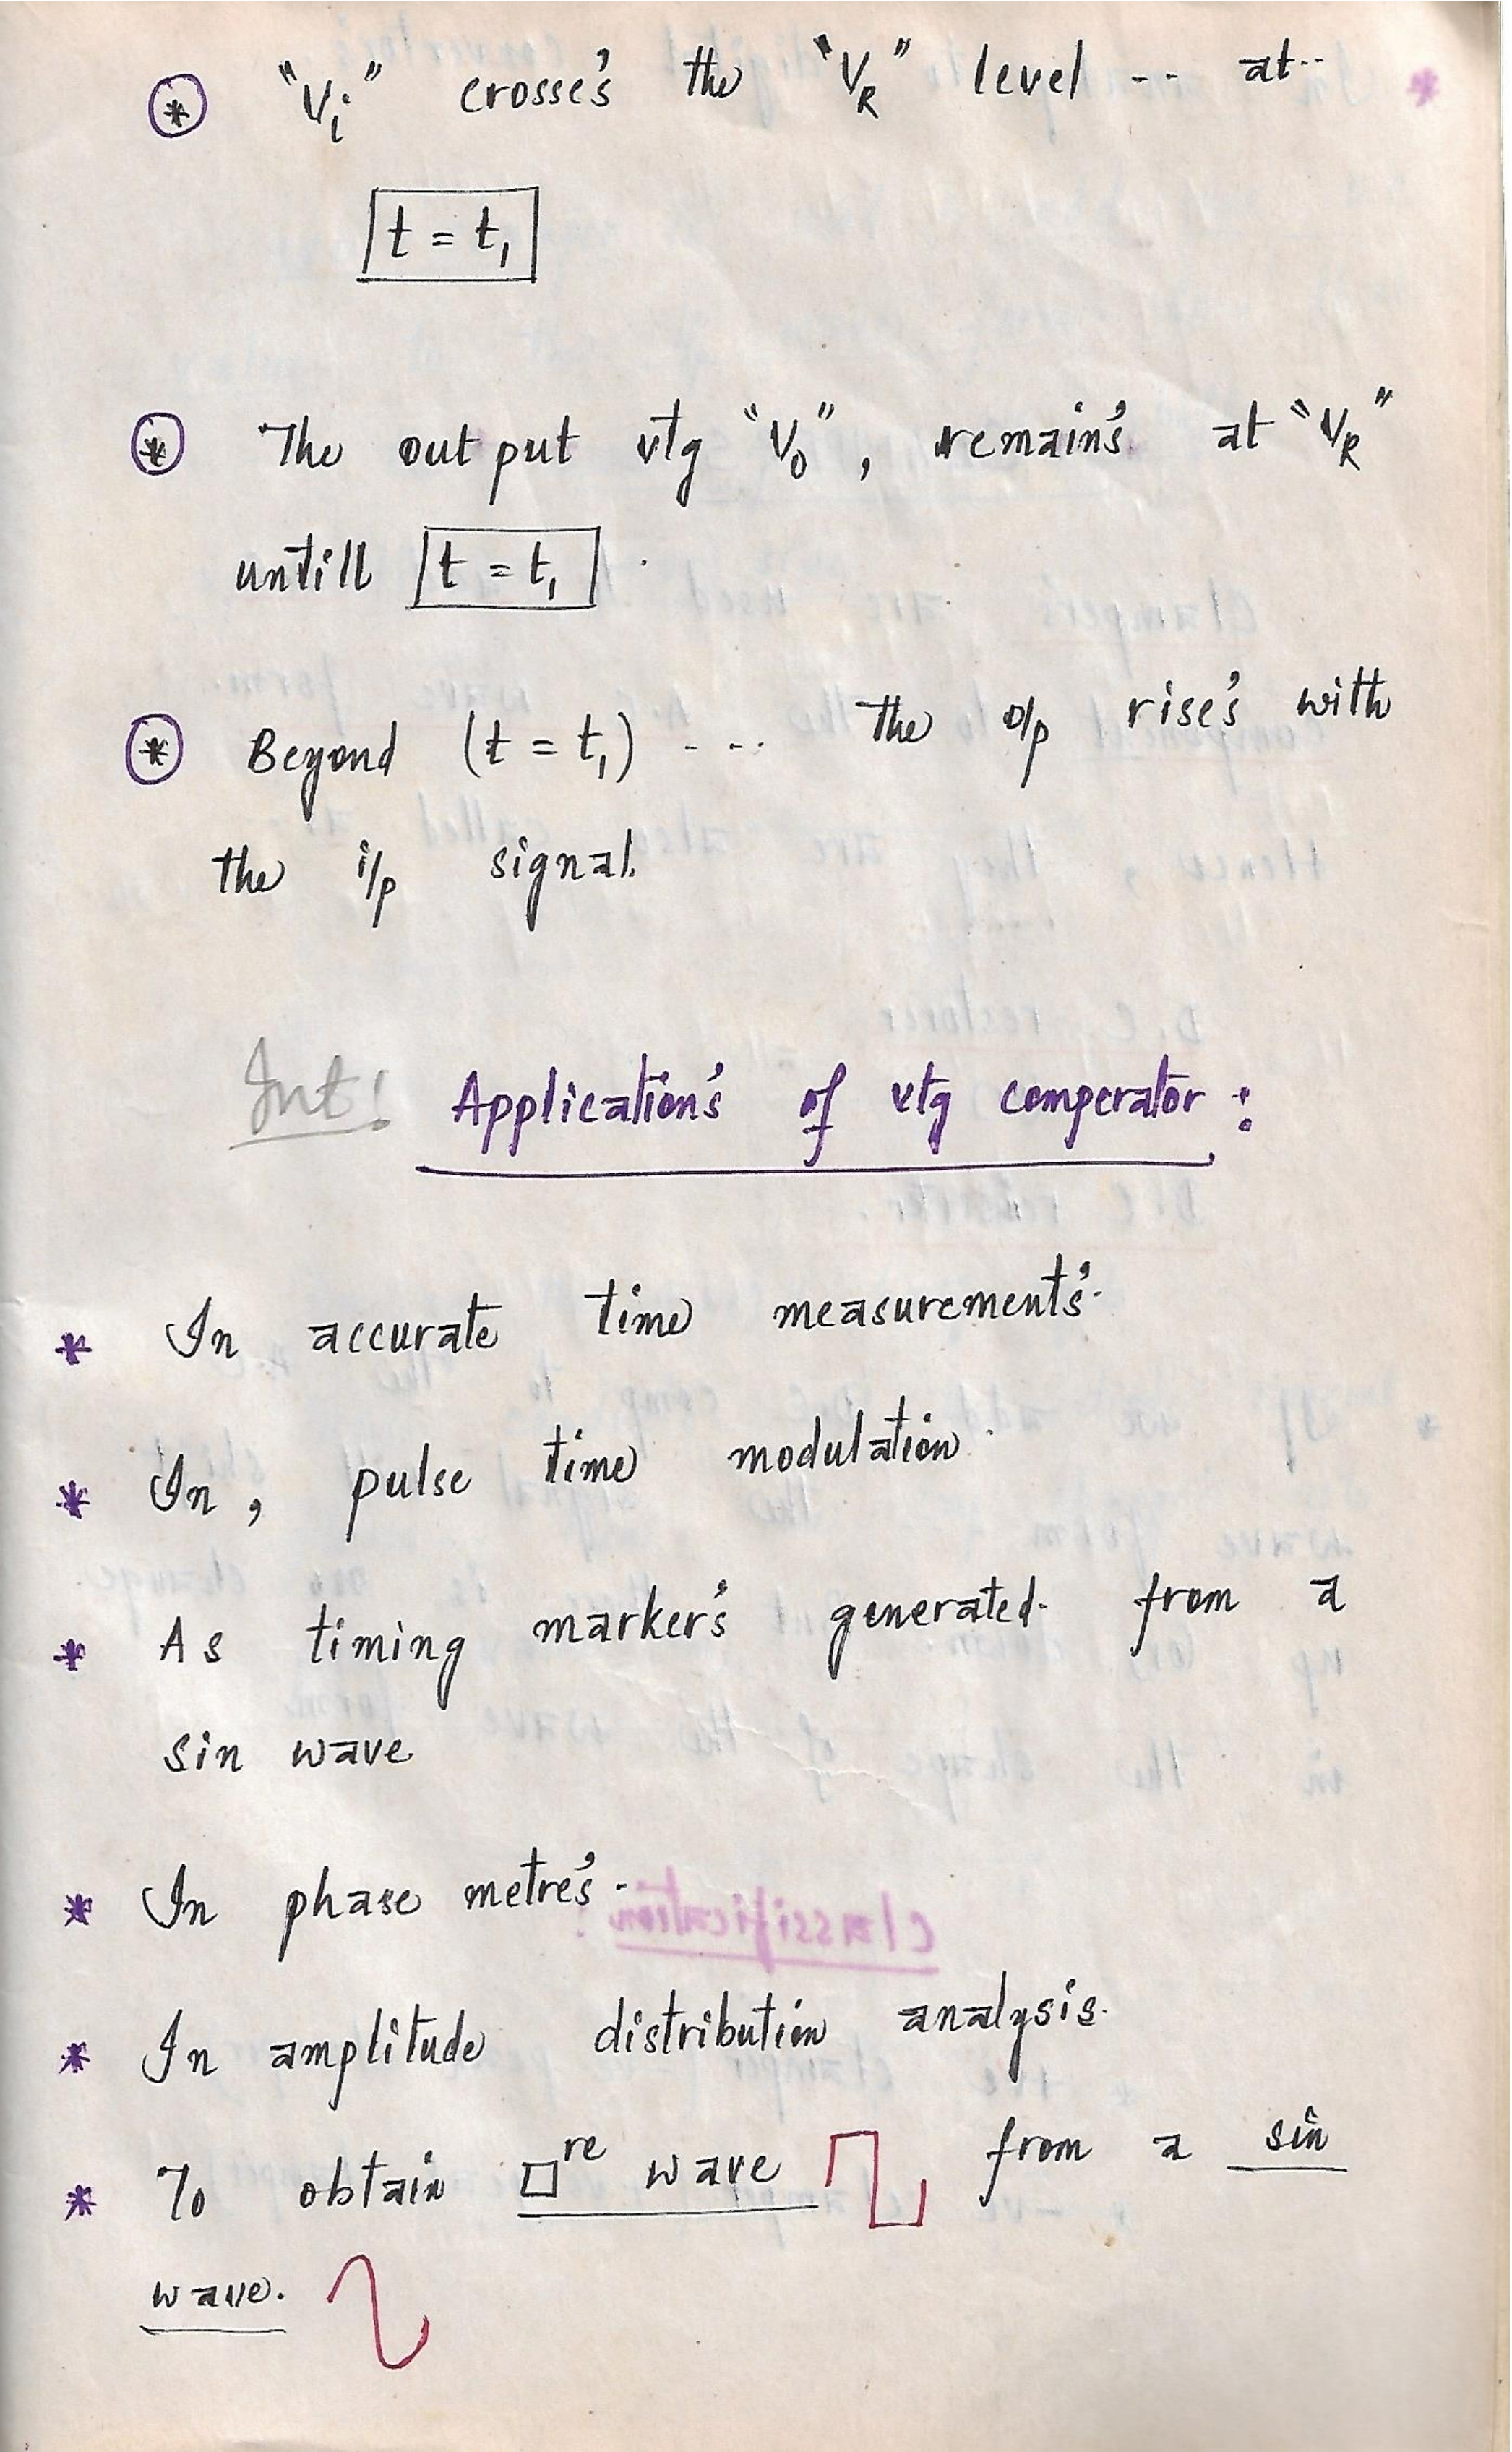 * "Vi" crosse's the "VR" level -- at--
t = t1
* The out put vtg "V0", remain's at "VR"
untill t = t1 .
* Beyond (t = t1) - -- The o/p rise's with
the i/p signal.
Int! Application's of vtg comperator :
* In accurate time measurement's.
* In, pulse time modulation.
* As timing marker's generated from a
sin wave
* In phase metre's.
* In amplitude distribution analysis.
* To obtain □re wave from a sin
wave.